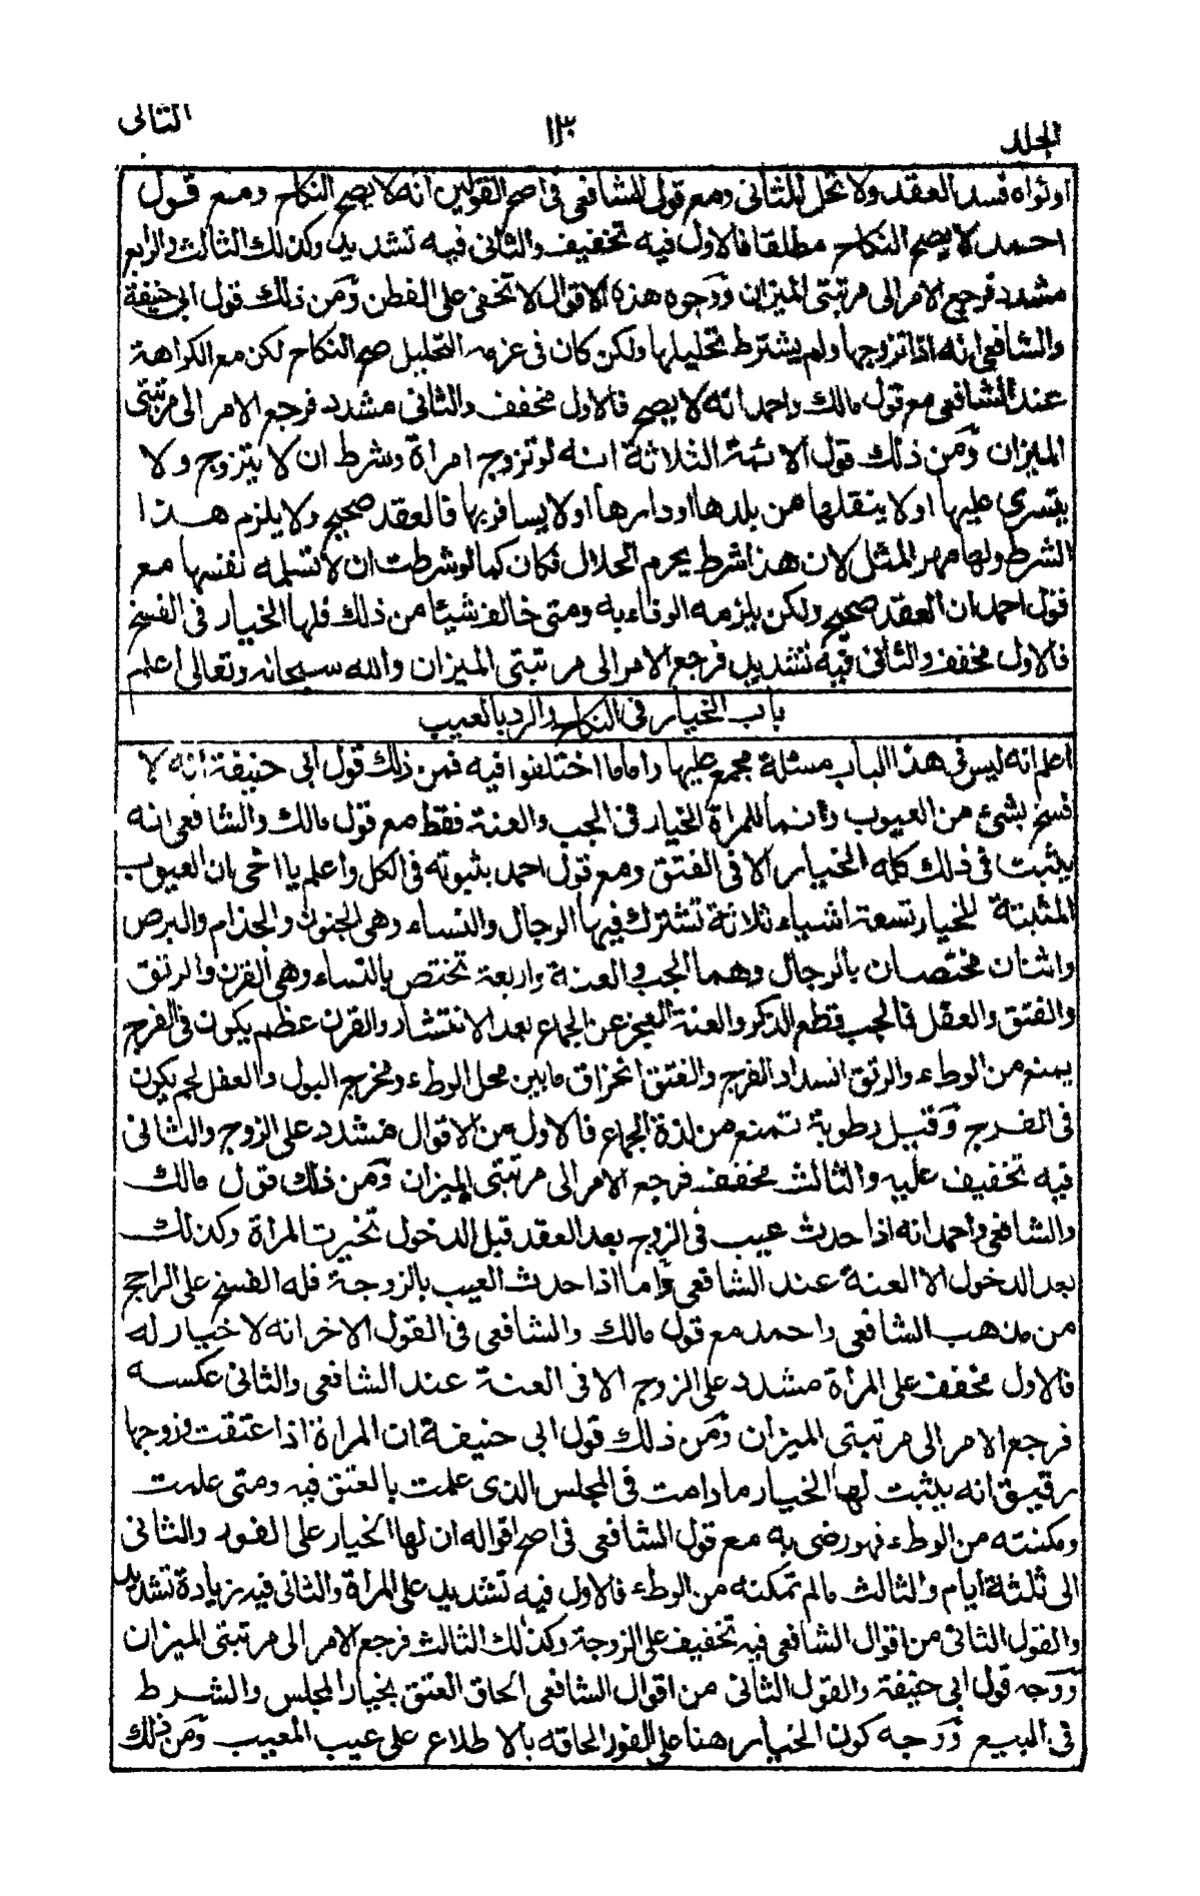 الجلد ١٣٠ الثانى
او نواه فسد العقد ولا تحل للثانى ومع قول للشافعى فى اصح القولين انه لا يصح النكاح ومع قول
احمد لا يصح النكاح مطلقا فالاول فيه تخفيف والثانى فيه تشديد وكذلك الثالث والرابع
مشدد فرجع الامر الى مرتبتى الميزان ووجوه هذه الاقوال لا تخفى على الفطن ومن ذلك قول ابى حنيفة
والشافعى انه اذا تزوجها ولم يشترط تحليلها ولكن كان فى عزمه التحليل صح النكاح لكن مع الكراهة
عند الشافعى مع قول مالك واحمد انه لا يصح فالاول مخفف والثانى مشدد فرجع الامر الى مرتبتى
الميزان ومن ذلك قول الائمة الثلاثة انه لو تزوج امرأة وشرط ان لا يتزوج ولا
يتسرى عليها او لا ينقلها من بلدها او دارها او لا يسافر بها فالعقد صحيح ولا يلزم هذا
الشرط ولها مهر المثل لان هذا شرط يحرم الحلال فكان كما لو شرطت ان لا تسلمه نفسها مع
قول احمد ان العقد صحيح ولكن يلزمه الوفاء به ومتى خالف شيئا من ذلك فلها الخيار فى الفسخ
فالاول مخفف والثانى فيه تشديد فرجع الامر الى مرتبتى الميزان والله سبحانه وتعالى اعلم
باب الخيار فى النكاح والرد بالعيب
اعلم انه ليس فى هذا الباب مسئلة مجمع عليها واما ما اختلفوا فيه فمن ذلك قول ابى حنيفة انه لا
فسخ بشئ من العيوب وانما للمرأة الخيار فى الجب والعنة فقط مع قول مالك والشافعى انه
يثبت فى ذلك كله الخيار الا فى الفتق ومع قول احمد بثبوته فى الكل واعلم يا اخى ان العيوب
المثبتة للخيار تسعة اشياء ثلاثة تشترك فيها الرجال والنساء وهى الجنون والجذام والبرص
واثنان مختصان بالرجال وهما الجب والعنة واربعة تختص بالنساء وهى القرن والرتق
والفتق والعفل فالجب قطع الذكر والعنة العجز عن الجماع بعد الانتشار والقرن عظم يكون فى الفرج
يمنع من الوطء والرتق انسداد الفرج والفتق انخراق ما بين محل الوطء ومخرج البول والعفل لحم يكون
فى الفرج وقيل رطوبة تمنع من لذة الجماع فالاول من الاقوال مشدد على الزوج والثانى
فيه تخفيف عليه والثالث مخفف فرجع الامر الى مرتبتى الميزان ومن ذلك قول مالك
والشافعى واحمد انه اذا حدث عيب فى الزوج بعد العقد قبل الدخول تخيرت المرأة وكذلك
بعد الدخول الا العنة عند الشافعى واما اذا حدث العيب بالزوجة فله الفسخ على الراجح
من مذهب الشافعى واحمد مع قول مالك والشافعى فى القول الاخر انه لا خيار له
فالاول مخفف على المرأة مشدد على الزوج الا فى العنة عند الشافعى والثانى عكسه
فرجع الامر الى مرتبتى الميزان ومن ذلك قول ابى حنيفة ان المرأة اذا عتقت وزوجها
رقيق انه يثبت لها الخيار ما دامت فى المجلس الذى علمت بالعتق فيه ومتى علمت
ومكنته من الوطء فهو رضى به مع قول الشافعى فى اصح اقواله ان لها الخيار على الفور والثانى
الى ثلثة ايام والثالث ما لم تمكنه من الوطء فالاول فيه تشديد على المرأة والثانى فيه زيادة تشديد
والقول الثانى من اقوال الشافعى فيه تخفيف على الزوجة وكذلك الثالث فرجع الامر الى مرتبتى الميزان
ووجه قول ابى حنيفة والقول الثانى من اقوال الشافعى الحاق العتق بخيار المجلس والشرط
فى البيع ووجه كون الخيار هنا على الفور الحاقه بالاطلاع على عيب المعيب ومن ذلك